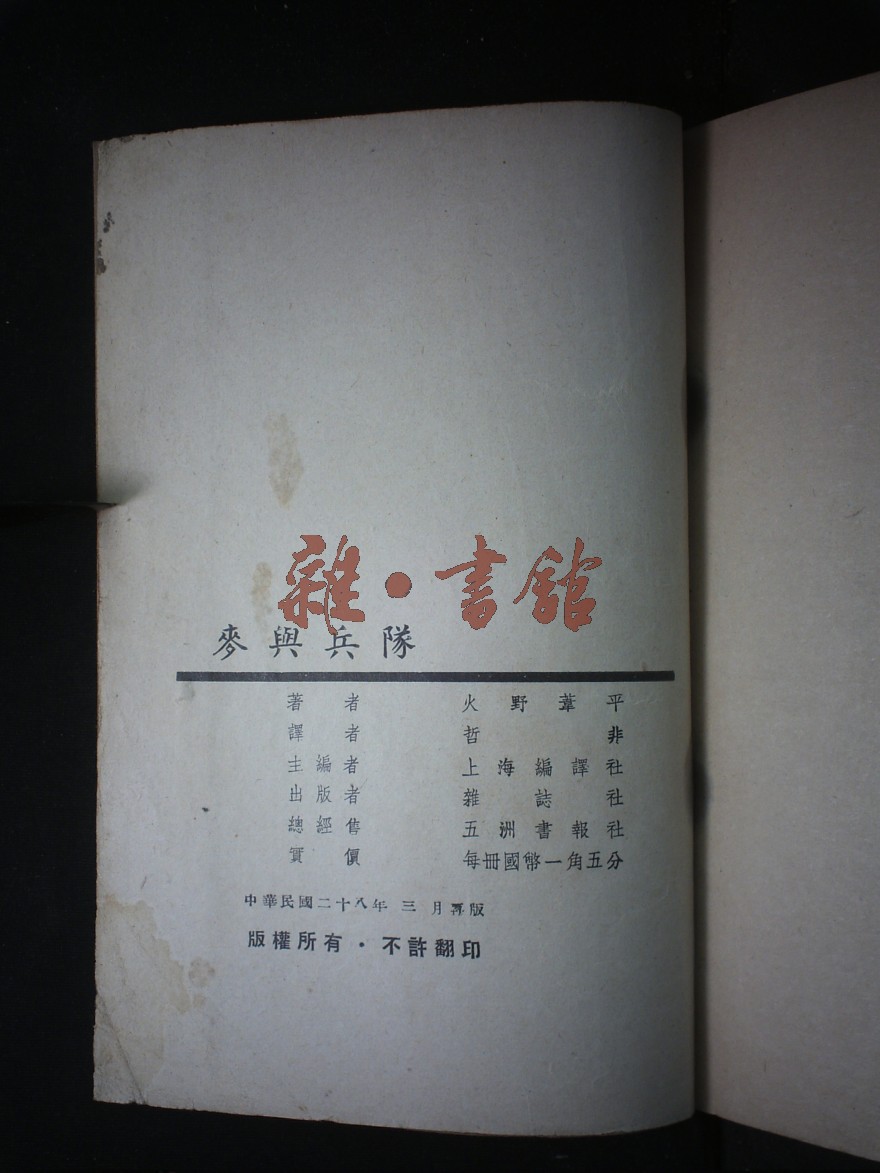 雜·書館
麥與兵隊
著者 火野葦平
譯者 哲非
主編者 上海編譯社
出版者 雜誌社
總經售 五洲書報社
實價 每冊國幣一角五分
中華民國二十八年 三 月再版
版權所有·不許翻印